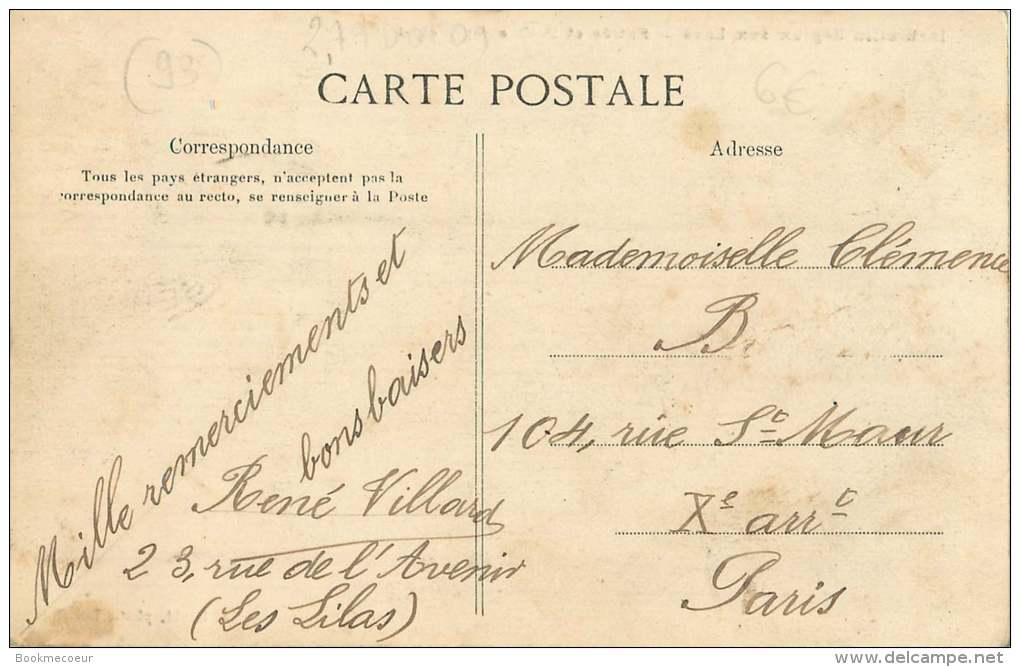 (93)
CARTE POSTALE
Correspondance
Tous les pays étrangers, n'acceptent pas la
orrespondance au recto, se renseigner à la Poste
Mille remerciements et
bons baisers
René Villard
23, rue de l'Avenir
(Les Lilas)
Adresse
Mademoiselle Clémence
B
104, rue St Maur
Xe arrt
Paris
Bookmecoeur
delcampe.net